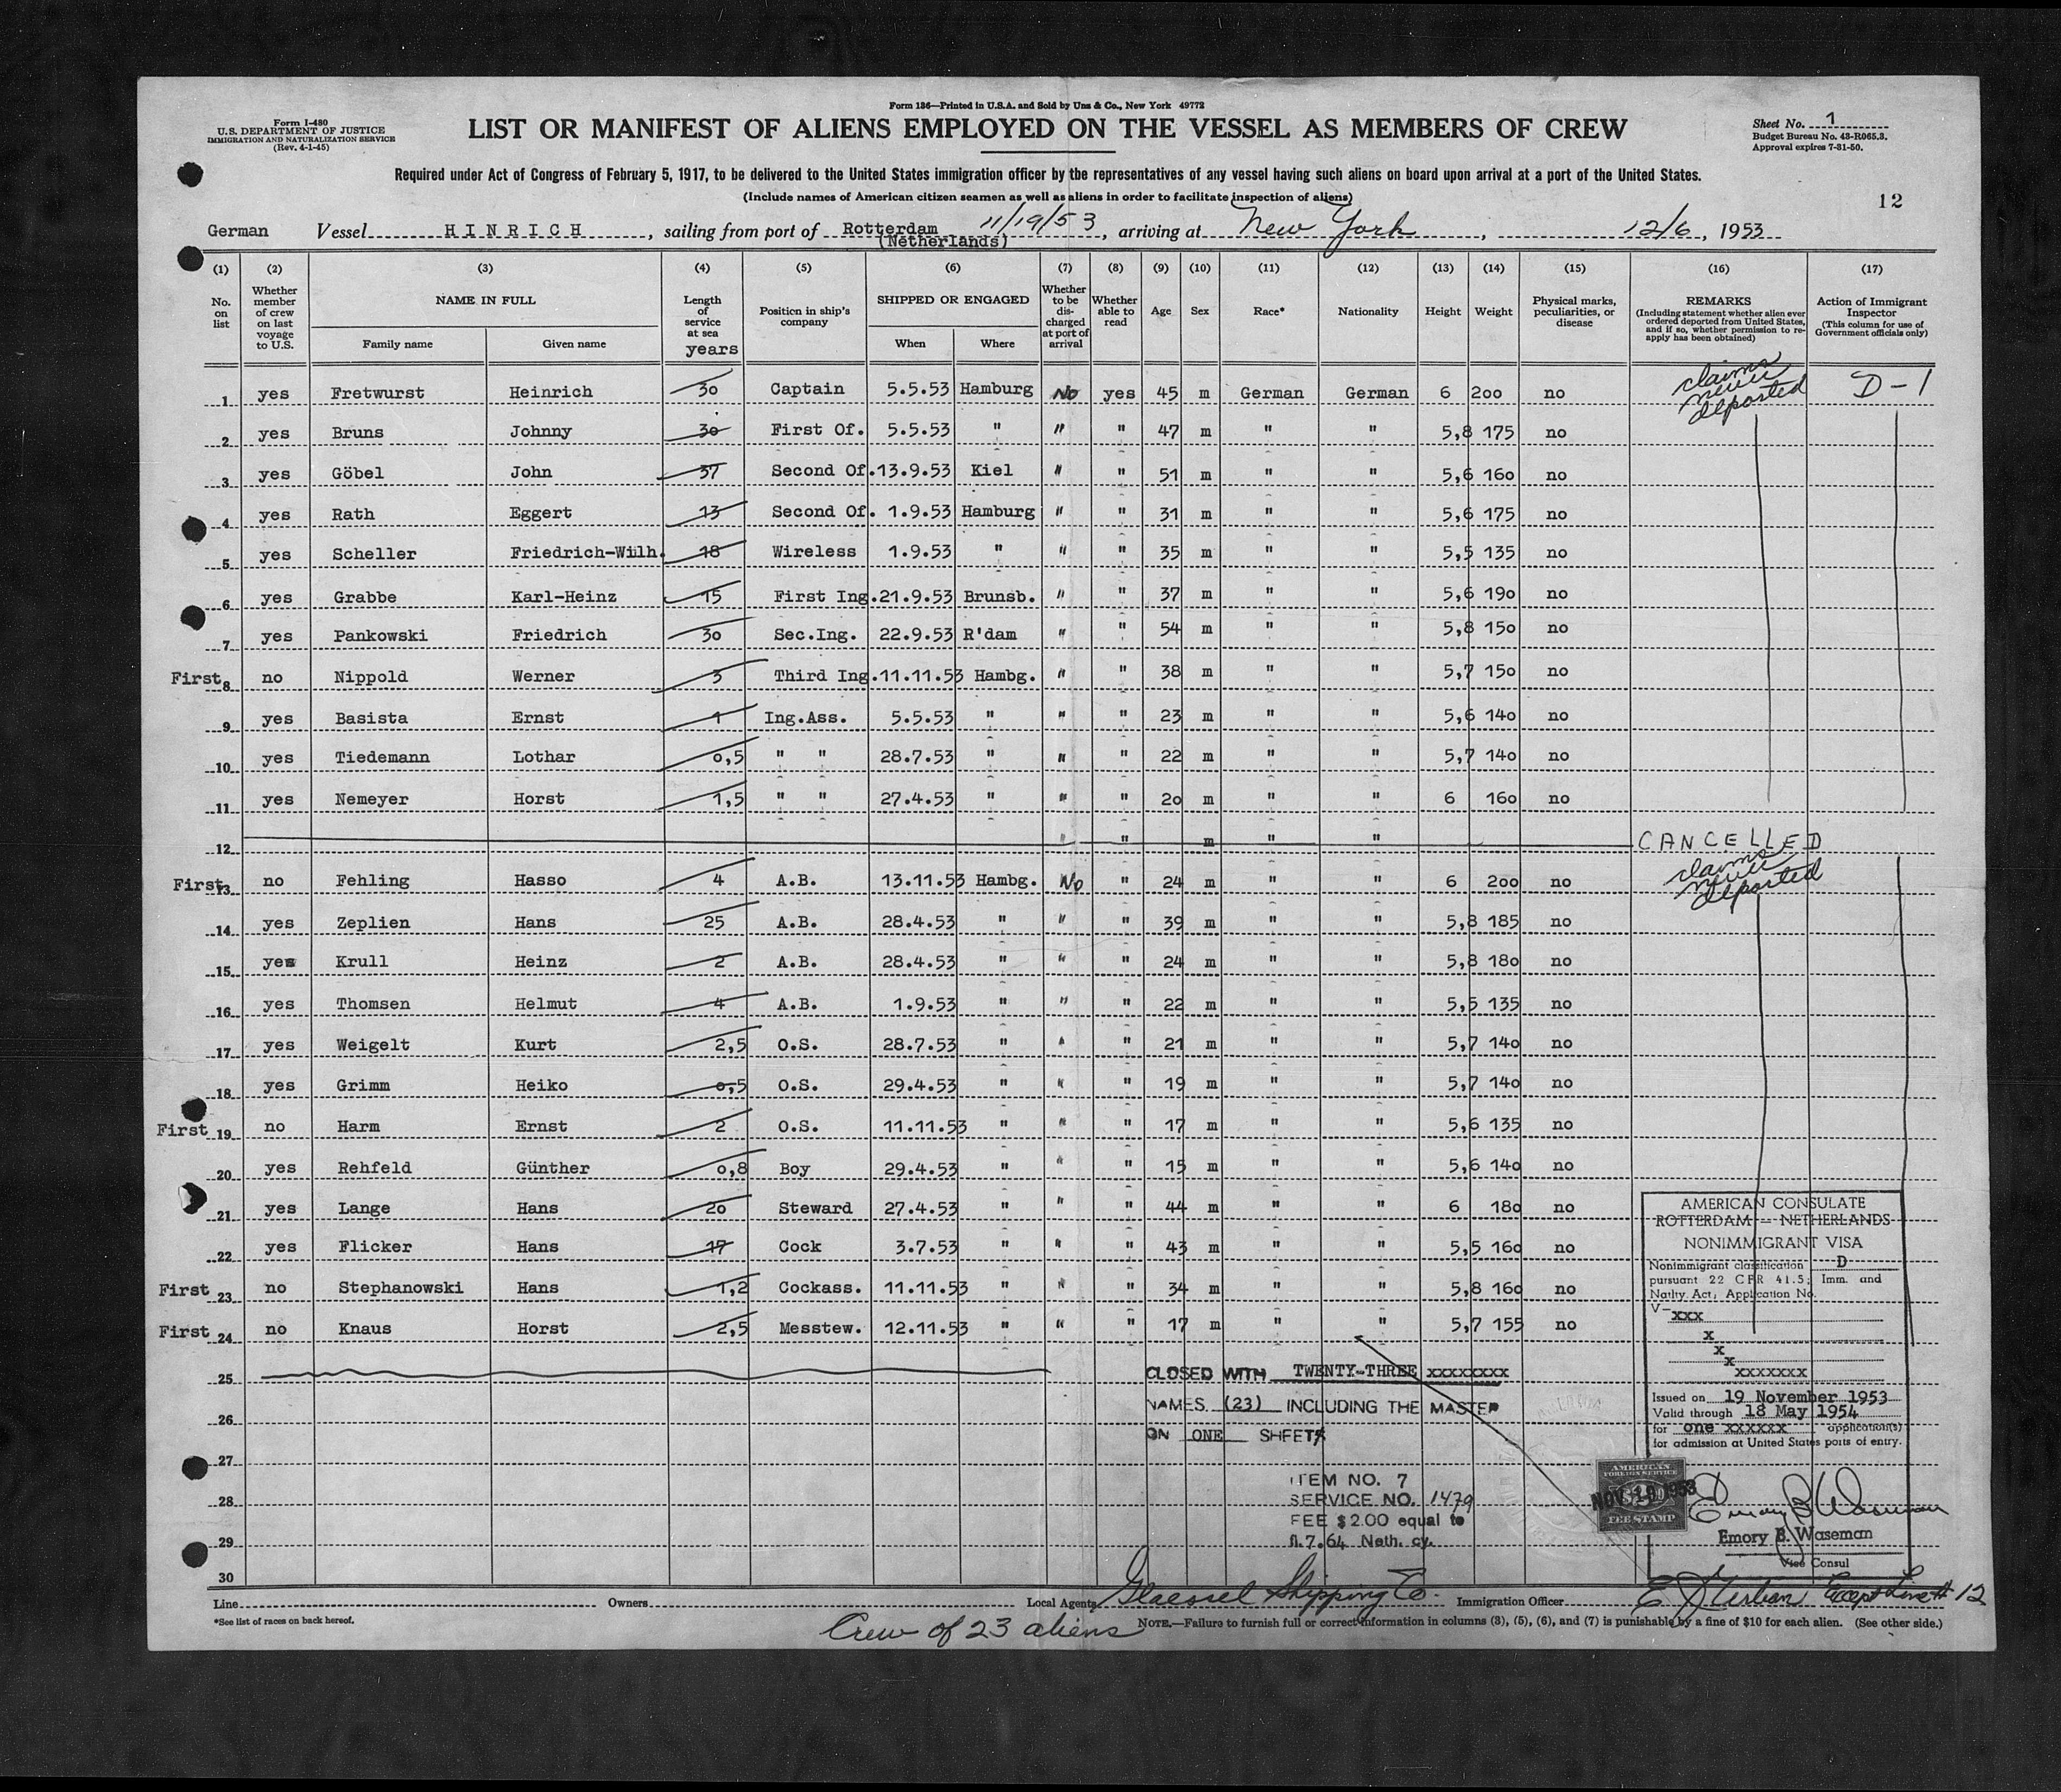 Form 136—Printed in U.S.A. and Sold by Unz & Co., New York 49772
Form I-480
U.S. DEPARTMENT OF JUSTICE
IMMIGRATION AND NATURALIZATION SERVICE
(Rev. 4-1-45)
LIST OR MANIFEST OF ALIENS EMPLOYED ON THE VESSEL AS MEMBERS OF CREW
Sheet No. 1
Budget Bureau No. 43-R065.3.
Approval expires 7-31-50.
Required under Act of Congress of February 5, 1917, to be delivered to the United States immigration officer by the representatives of any vessel having such aliens on board upon arrival at a port of the United States.
(Include names of American citizen seamen as well as aliens in order to facilitate inspection of aliens)
12
German Vessel HINRICH, sailing from port of Rotterdam (Netherlands) 11/19/53, arriving at New York, 12/6, 1953
(1) (2) (3) (4) (5) (6) (7) (8) (9) (10) (11) (12) (13) (14) (15) (16) (17)
No. on list
Whether member of crew on last voyage to U.S.
NAME IN FULL
Family name Given name
Length of service at sea years
Position in ship's company
SHIPPED OR ENGAGED
When Where
Whether to be discharged at port of arrival
Whether able to read
Age Sex Race* Nationality Height Weight
Physical marks, peculiarities, or disease
REMARKS
(Including statement whether alien ever ordered deported from United States, and if so, whether permission to re-apply has been obtained)
Action of Immigrant Inspector
(This column for use of Government officials only)
1 yes Fretwurst Heinrich 30 Captain 5.5.53 Hamburg No yes 45 m German German 6 200 no claims never deported D-1
2 yes Bruns Johnny 30 First Of. 5.5.53 " " " 47 m " " 5,8 175 no
3 yes Göbel John 37 Second Of. 13.9.53 Kiel " " 51 m " " 5,6 160 no
4 yes Rath Eggert 13 Second Of. 1.9.53 Hamburg " " 31 m " " 5,6 175 no
5 yes Scheller Friedrich-Wilh. 18 Wireless 1.9.53 " " " 35 m " " 5,5 135 no
6 yes Grabbe Karl-Heinz 15 First Ing. 21.9.53 Brunsb. " " 37 m " " 5,6 190 no
7 yes Pankowski Friedrich 30 Sec.Ing. 22.9.53 R'dam " " 54 m " " 5,8 150 no
First 8 no Nippold Werner 3 Third Ing. 11.11.53 Hambg. " " 38 m " " 5,7 150 no
9 yes Basista Ernst 1 Ing.Ass. 5.5.53 " " " 23 m " " 5,6 140 no
10 yes Tiedemann Lothar 0,5 " " 28.7.53 " " " 22 m " " 5,7 140 no
11 yes Nemeyer Horst 1,5 " " 27.4.53 " " " 20 m " " 6 160 no
12 " " m " " CANCELLED
First 13 no Fehling Hasso 4 A.B. 13.11.53 Hambg. No " 24 m " " 6 200 no claims never deported
14 yes Zeplien Hans 25 A.B. 28.4.53 " " " 39 m " " 5,8 185 no
15 yes Krull Heinz 2 A.B. 28.4.53 " " " 24 m " " 5,8 180 no
16 yes Thomsen Helmut 4 A.B. 1.9.53 " " " 22 m " " 5,5 135 no
17 yes Weigelt Kurt 2,5 O.S. 28.7.53 " " " 21 m " " 5,7 140 no
18 yes Grimm Heiko 0,5 O.S. 29.4.53 " " " 19 m " " 5,7 140 no
First 19 no Harm Ernst 2 O.S. 11.11.53 " " " 17 m " " 5,6 135 no
20 yes Rehfeld Günther 0,8 Boy 29.4.53 " " " 15 m " " 5,6 140 no
21 yes Lange Hans 20 Steward 27.4.53 " " " 44 m " " 6 180 no
22 yes Flicker Hans 17 Cock 3.7.53 " " " 43 m " " 5,5 160 no
First 23 no Stephanowski Hans 1,2 Cockass. 11.11.53 " " " 34 m " " 5,8 160 no
First 24 no Knaus Horst 2,5 Messtew. 12.11.53 " " " 17 m " " 5,7 155 no
25
26
27
28
29
30
CLOSED WITH TWENTY-THREE xxxxxxxx
NAMES (23) INCLUDING THE MASTER
ON ONE SHEET
ITEM NO. 7
SERVICE NO. 1479
FEE $2.00 equal to
fl.7.64 Neth. cy.
AMERICAN CONSULATE
ROTTERDAM — NETHERLANDS
NONIMMIGRANT VISA
Nonimmigrant classification D
pursuant 22 CFR 41.5; Imm. and
Natlty. Act; Application No.
V- xxx
x
x
x
xxxxxxx
Issued on 19 November 1953
Valid through 18 May 1954
for one xxxxxx application(s)
for admission at United States ports of entry.
AMERICAN FOREIGN SERVICE
NOV 19 1953
FEE STAMP
Emory B. Waseman
Emory B. Waseman
Vice Consul
Line Owners Local Agents Glaessel Shipping Co. Immigration Officer Except Line # 12
*See list of races on back hereof.
Crew of 23 aliens
NOTE.—Failure to furnish full or correct information in columns (3), (5), (6), and (7) is punishable by a fine of $10 for each alien. (See other side.)